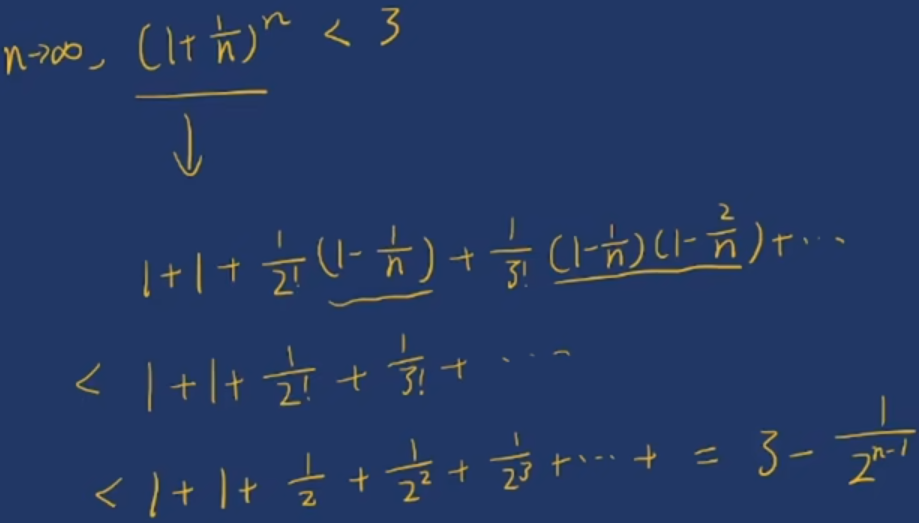 n→∞, (1+1/n)^n < 3
↓
1+1+1/2!(1-1/n)+1/3!(1-1/n)(1-2/n)+...
< 1+1+1/2!+1/3!+...
< 1+1+1/2+1/2^2+1/2^3+...+ = 3-1/2^(n-1)